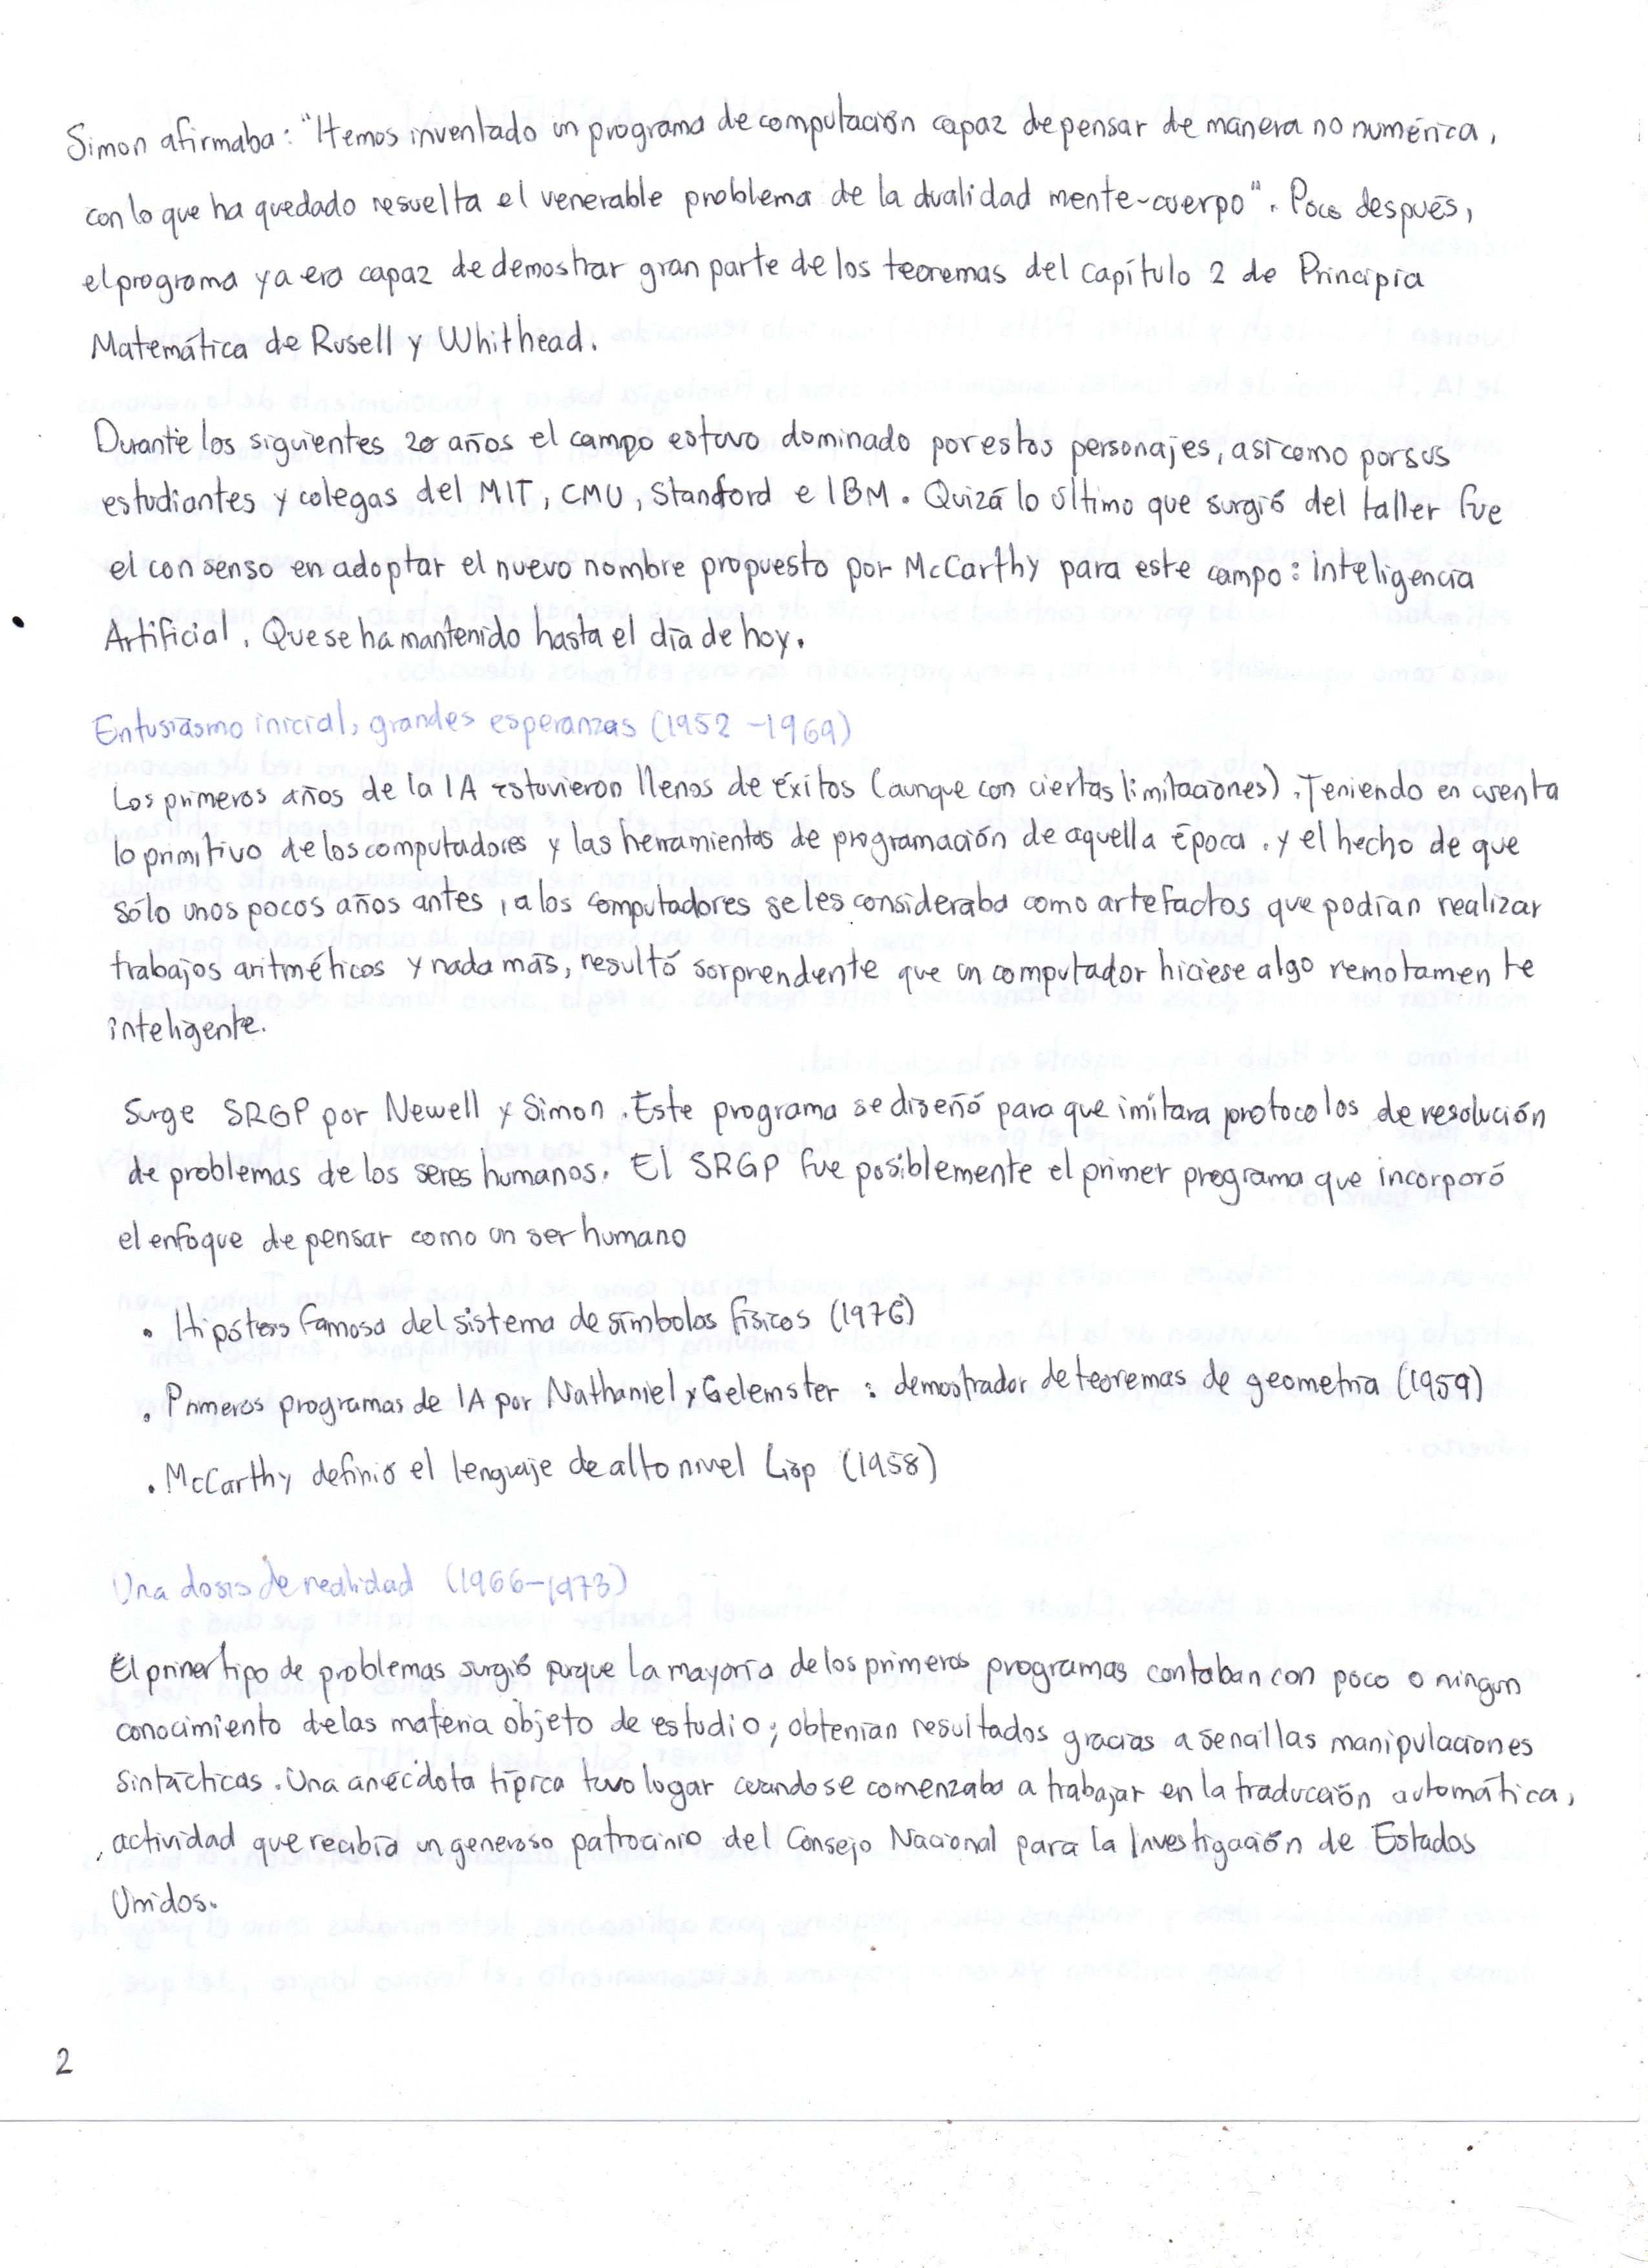 Simon afirmaba: "Hemos inventado un programa de computación capaz de pensar de manera no numérica,
con lo que ha quedado resuelta el venerable problema de la dualidad mente-cuerpo". Poco después,
el programa ya era capaz de demostrar gran parte de los teoremas del capítulo 2 de Principia
Matemática de Rusell y Whithead.
Durante los siguientes 20 años el campo estuvo dominado por estos personajes, así como por sus
estudiantes y colegas del MIT, CMU, Stanford e IBM. Quizá lo último que surgió del taller fue
el consenso en adoptar el nuevo nombre propuesto por McCarthy para este campo: Inteligencia
Artificial. Que se ha mantenido hasta el día de hoy.
Entusiasmo inicial, grandes esperanzas (1952-1969)
Los primeros años de la IA estuvieron llenos de éxitos (aunque con ciertas limitaciones). Teniendo en cuenta
lo primitivo de los computadores y las herramientas de programación de aquella época. y el hecho de que
sólo unos pocos años antes, a los computadores se les consideraba como artefactos que podían realizar
trabajos aritméticos y nada más, resultó sorprendente que un computador hiciese algo remotamente
inteligente.
Surge SRGP por Newell y Simon. Este programa se diseñó para que imitara protocolos de resolución
de problemas de los seres humanos. El SRGP fue posiblemente el primer programa que incorporó
el enfoque de pensar como un ser humano
• Hipótesis famosa del sistema de símbolos físicos (1976)
• Primeros programas de IA por Nathaniel y Gelemster: demostrador de teoremas de geometría (1959)
• McCarthy definió el lenguaje de alto nivel Lisp (1958)
Una dosis de realidad (1966-1973)
El primer tipo de problemas surgió porque la mayoría de los primeros programas contaban con poco o ningún
conocimiento de las materia objeto de estudio; obtenían resultados gracias a sencillas manipulaciones
sintácticas. Una anécdota típica tuvo lugar cuando se comenzaba a trabajar en la traducción automática,
, actividad que recibía un generoso patrocinio del Consejo Nacional para la Investigación de Estados
Unidos.
2